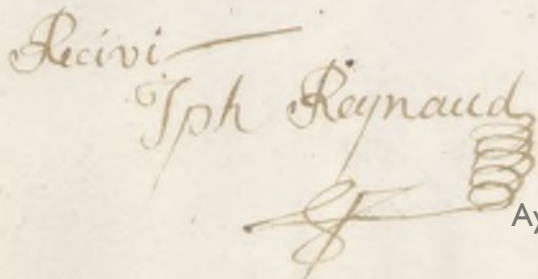 Recivi
Jph Reynaud
Ay